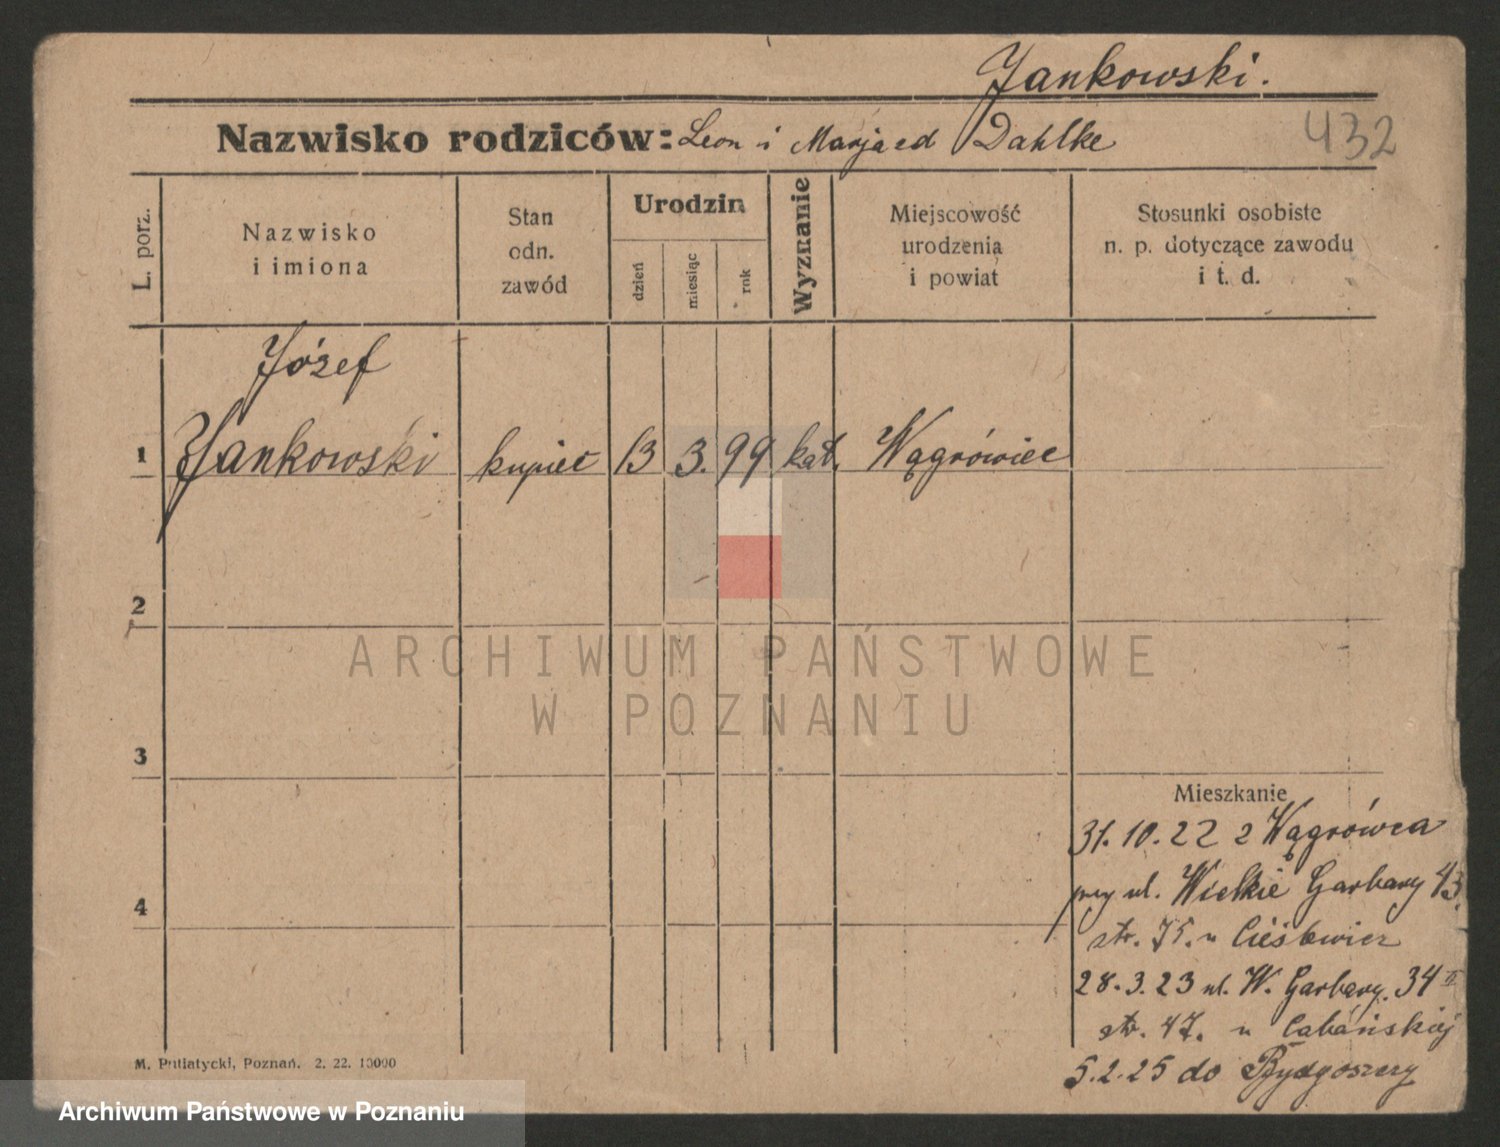 Jankowski.
432
Nazwisko rodziców: Leon i Marja Dahlke
L. porz.
Nazwisko i imiona
Stan odn. zawód
Urodzin
dzień
miesiąc
rok
Wyznanie
Miejscowość urodzenia i powiat
Stosunki osobiste n. p. dotyczące zawodu i t. d.
Józef
1 Jankowski kupiec 13 3. 99 kat. Wągrówiec
2
ARCHIWUM PAŃSTWOWE
W POZNANIU
3
Mieszkanie
31.10.22 z Wągrówca
przy ul. Wielkie Garbary 43.
4
str. u
28.3.23 ul. W. Garbary. 34 II
str. 47. u
5.2.25 do Bydgoszczy
M. Putiatycki, Poznań. 2. 22. 10000
Archiwum Państwowe w Poznaniu